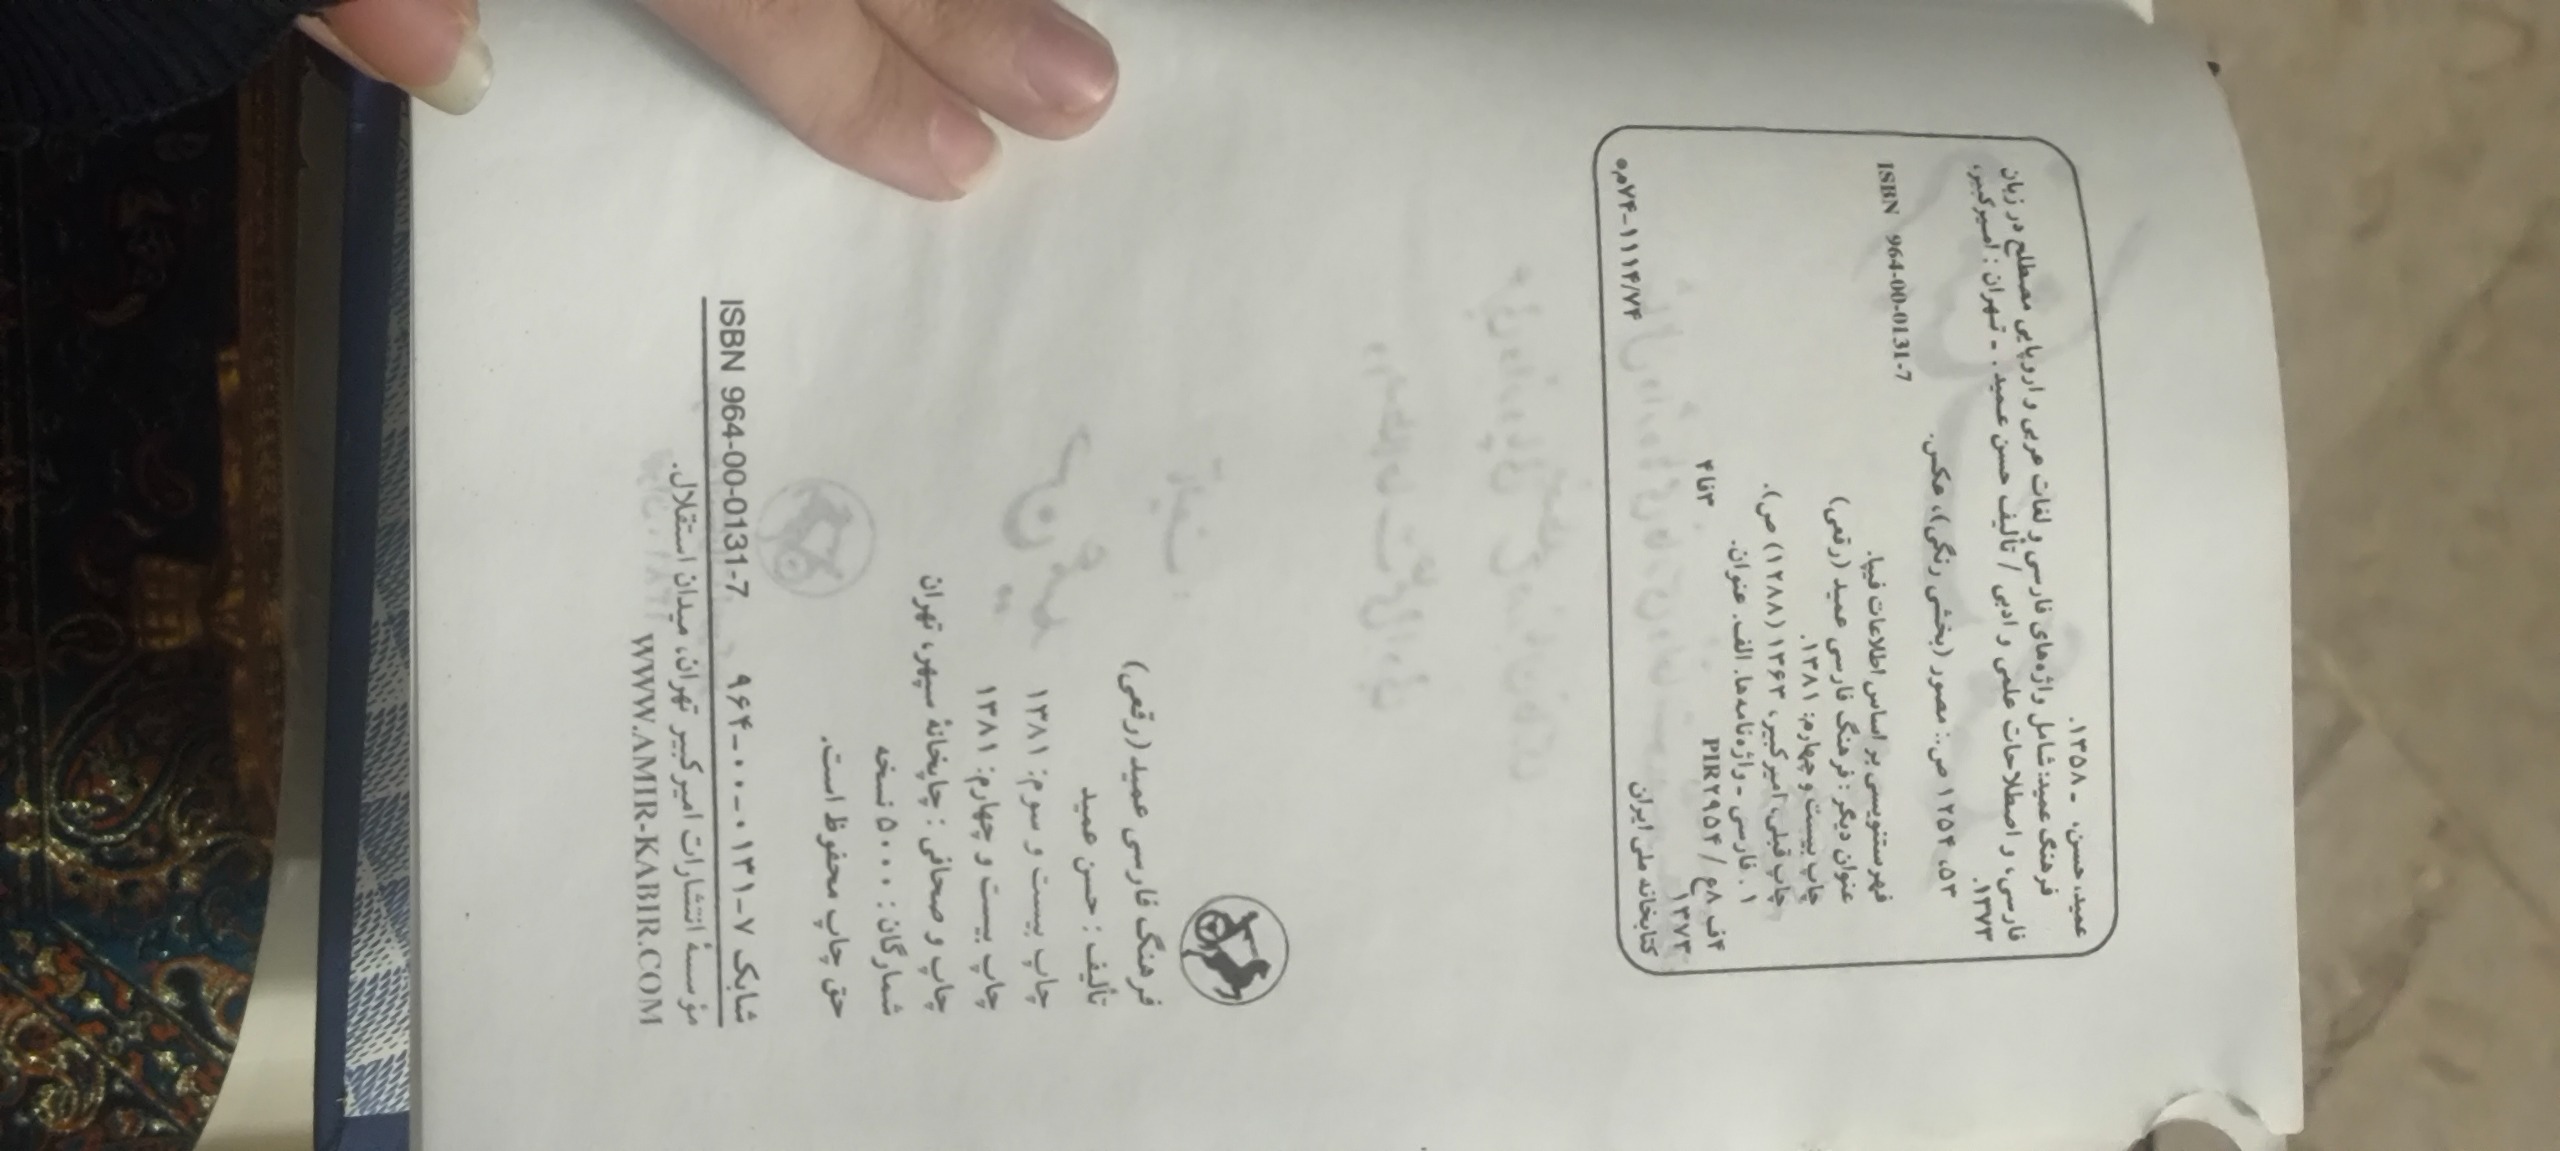 عمید، حسن، - ۱۳۵۸.
فرهنگ عمید: شامل واژه‌های فارسی و لغات عربی و اروپایی مصطلح در زبان
فارسی، و اصطلاحات علمی و ادبی / تألیف حسن عمید. - تهران: امیرکبیر،
۱۳۷۳.
۵۳، ۱۲۵۴ ص.: مصور (بخشی رنگی)، عکس.
ISBN 964-00-0131-7
فهرستنویسی بر اساس اطلاعات فیپا.
عنوان دیگر: فرهنگ فارسی عمید (رقعی)
چاپ بیست و چهارم: ۱۳۸۱.
چاپ قبلی، امیرکبیر، ۱۳۶۳ (۱۲۸۸) ص).
۱. فارسی - واژه‌نامه‌ها. الف. عنوان.
۴ف۸ع / PIR۲۹۵۴ ۳فا۴
۱۳۷۳
کتابخانه ملی ایران ۷۴-۱۱۱۴/۷۴م
فرهنگ فارسی عمید (رقعی)
تألیف: حسن عمید
چاپ بیست و سوم: ۱۳۸۱
چاپ بیست و چهارم: ۱۳۸۱
چاپ و صحافی: چاپخانهٔ سپهر، تهران
شمارگان: ۵۰۰۰ نسخه
حق چاپ محفوظ است.
شابک ۷-۰۱۳۱-۰۰-۹۶۴ ISBN 964-00-0131-7
مؤسسهٔ انتشارات امیرکبیر تهران، میدان استقلال.
WWW.AMIR-KABIR.COM